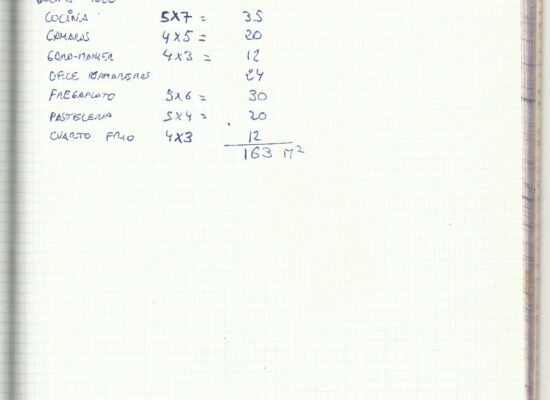 COCINA 5X7 = 35
CAMARAS 4X5 = 20
GARD-MANGER 4X3 = 12
OFICE CAMAREROS 24
FREGAPLATO 5X6 = 30
PASTELERIA 5X4 = 20
CUARTO FRIO 4X3 12
163 M²